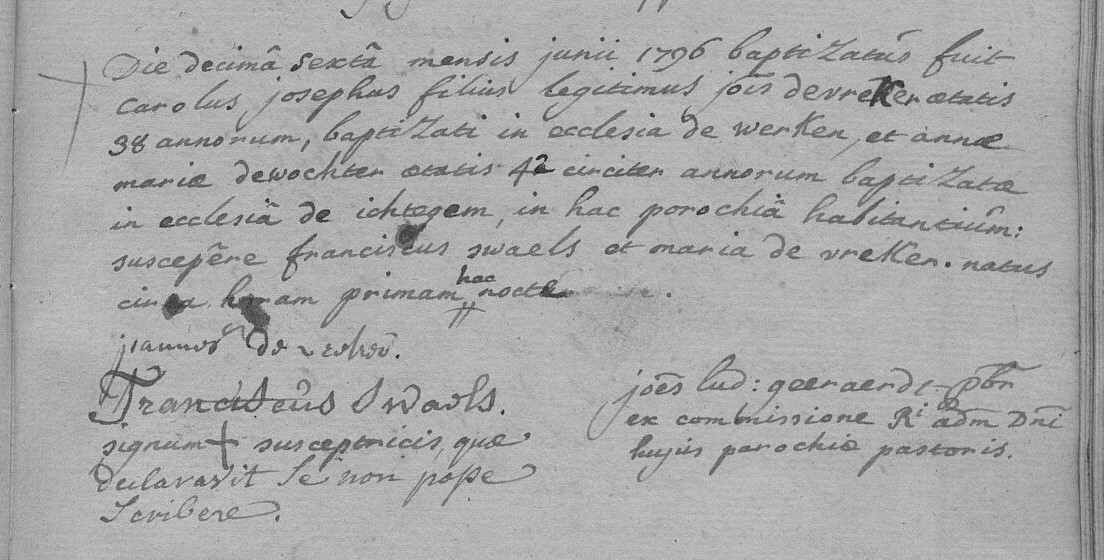 Die decimâ sextâ mensis junii 1796 baptizatus fuit
carolus josephus filius legitimus jois devreker ætatis
38 annorum, baptizati in ecclesia de werken, et annæ
mariæ dewochter ætatis 42 circiter annorum baptizatæ
in ecclesiâ de ichtegem, in hac parochiâ habitantium:
suscepêre franciscus swaels et maria de vreker. natus
circa horam primam hac nocte.
joannes de
Franciscus Swaels.
signum + susceptricis, quæ
declaravit se non posse
scribere.
joes lud: geeraerdt pbr
ex commissione Ri adm Dni
hujus parochiæ pastoris.